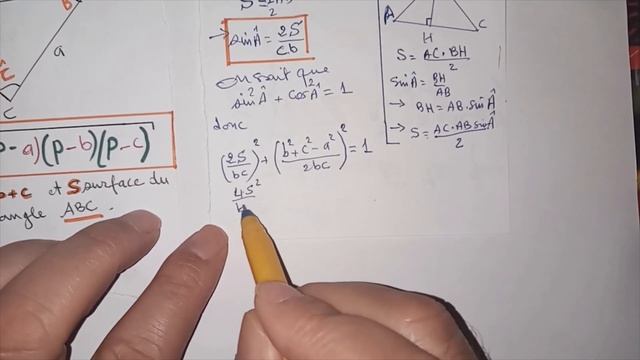 B
a
Ĉ
C
- a)(p-b)(p-c)
b+c et S surface du
angle ABC.
→ sin Â = 2S/cb
On sait que
sin² Â + cos² Â = 1
donc
(2S/bc)² + (b²+c²-a²/2bc)² = 1
4S²
A
H
C
S = AC·BH/2
sin Â = BH/AB
→ BH = AB·sin Â
→ S = AC·AB sin Â/2